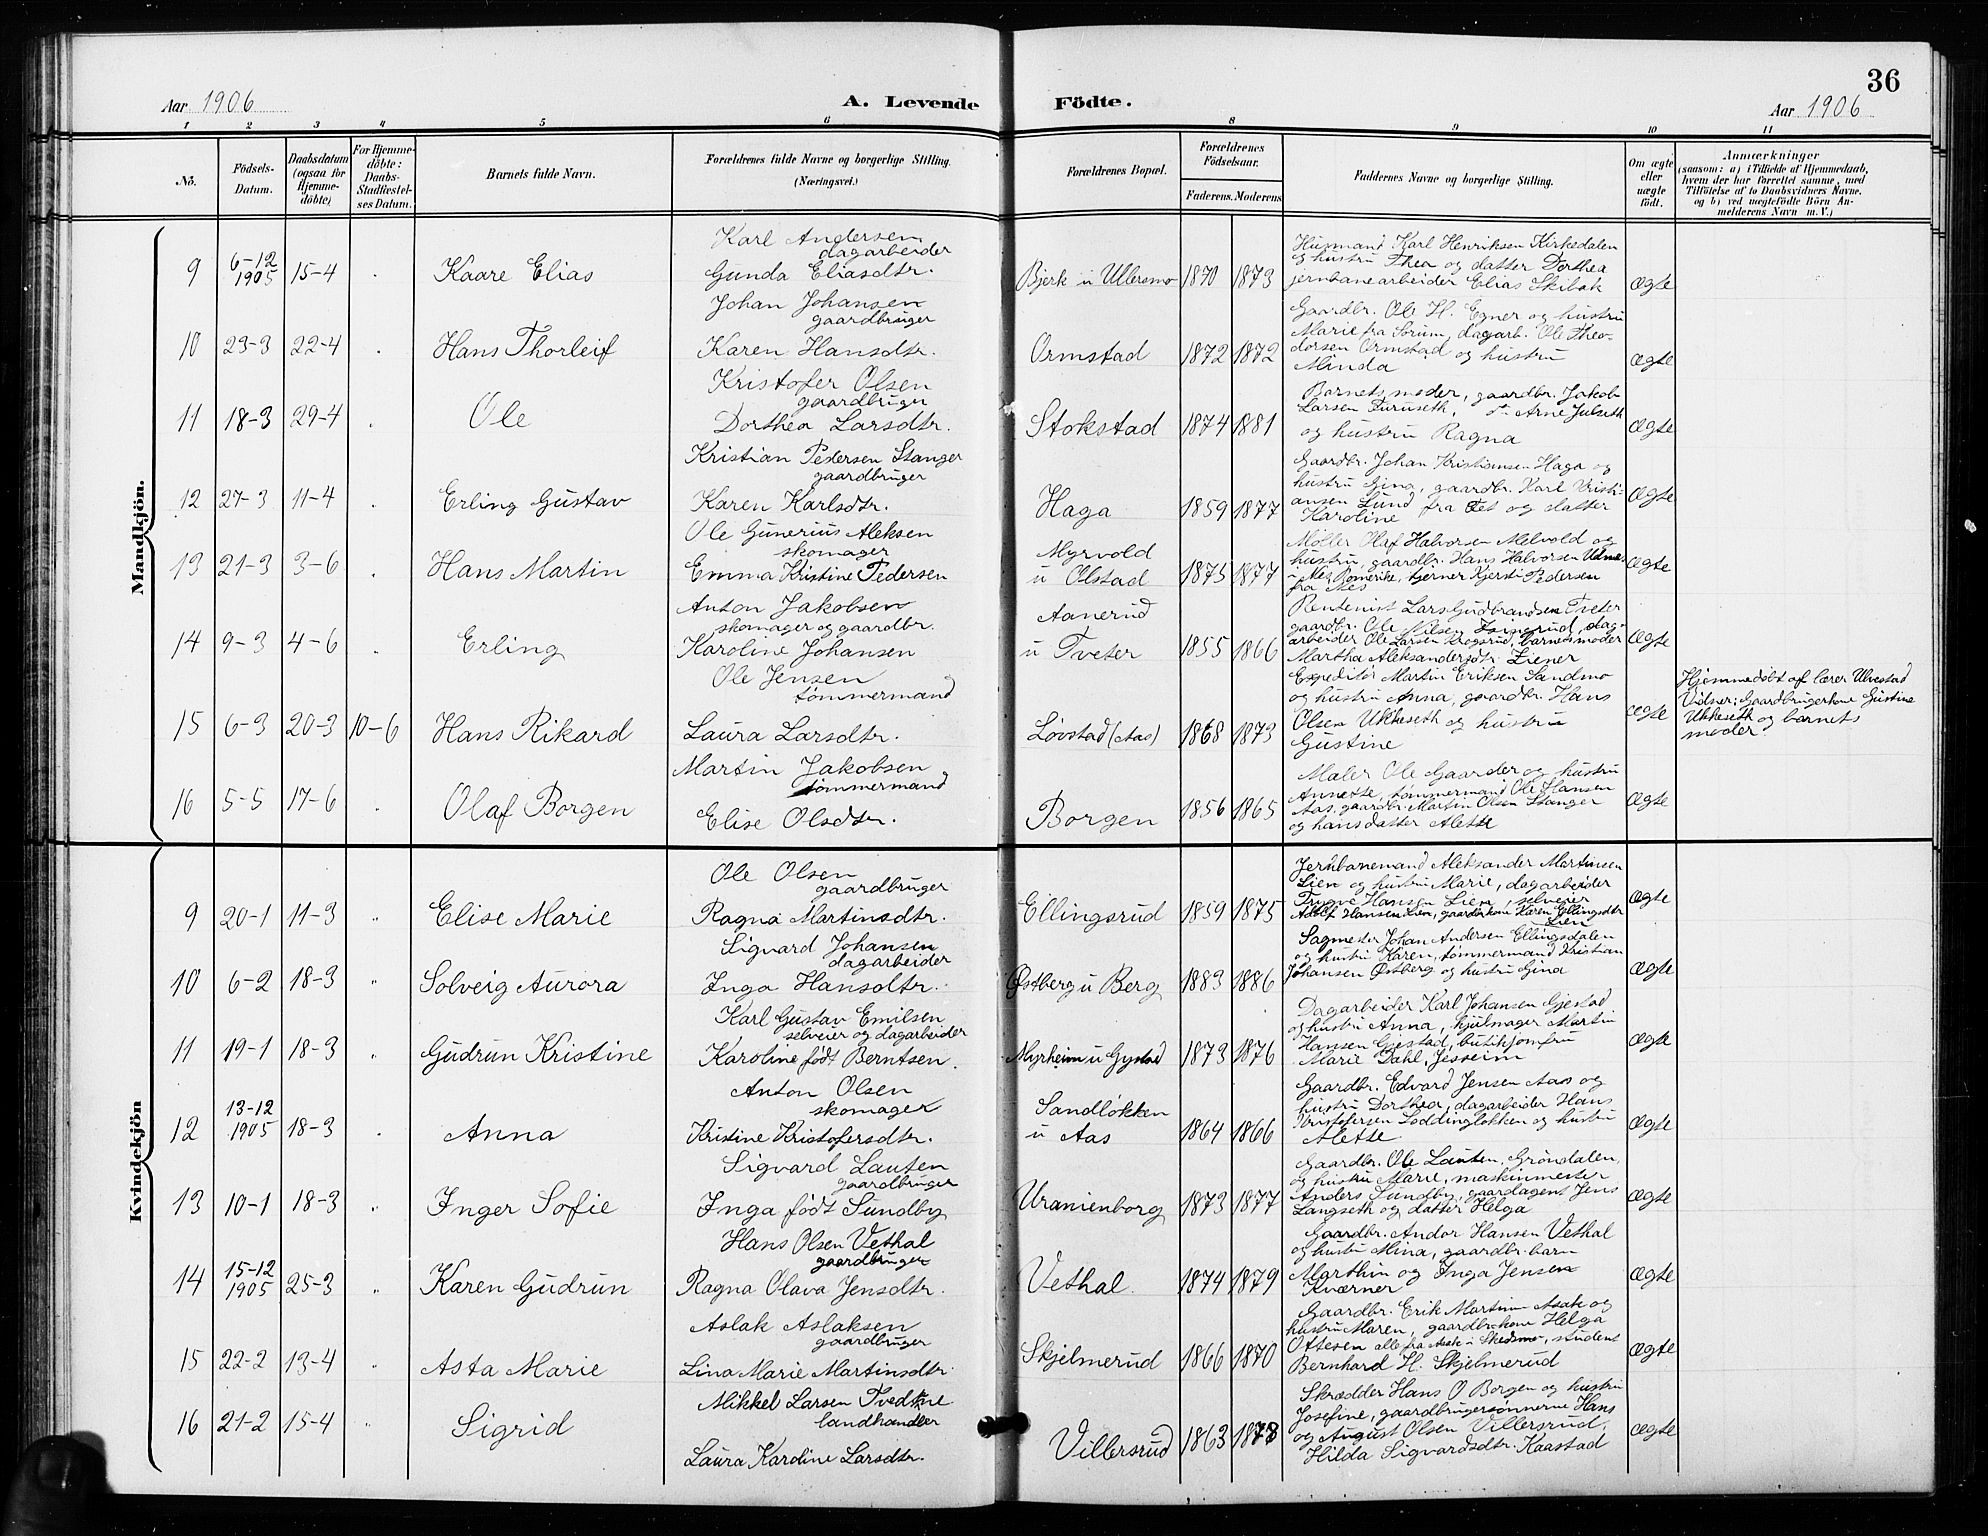 36
Aar 1906
A. Levende
Födte.
Aar 1906
1 2 3 4 5 6 8 9 10 11
No.
Födsels-
Datum.
Daabsdatum
(ogsaa for
Hjemme-
döbte)
For Hjemme-
döbte:
Daabs-
Stadfæstel-
ses Datum.
Barnets fulde Navn.
Forældrenes fulde Navne og borgerlige Stilling.
(Næringsvei.)
Forældrenes Bopæl.
Forældrenes
Födselsaar.
Faderens. Moderens
Faddernes Navne og borgerlige Stilling.
Om ægte
eller
uægte
født.
Anmærkninger
(saasom: a) i Tilfælde af Hjemmedaab,
hvem der har forrettet samme, med
Tilføielse af to Daabsvidners Navne,
og b) ved uægtefödte Börn An-
melderens Navn m. V.)
Mandkjön.
Karl Andersen
dagarbeider
9 6-12 1905 15-4 Kaare Elias Gunda Eliasdtr. Bjerk u Ullersmo 1870 1873
Husmand Karl Henriksen Kirkedalen
og hustru Thea og datter Dorthea
jernbanearbeider Elias Skibak ægte
Johan Johansen
gaardbruger
10 23-3 22-4 Hans Thorleif Karen Hansdtr. Ormstad 1872 1872
Gaardbr. Ole H. Egner og hustru
Marie fra Sörum, dagarb. Ole Theo-
dorsen Ormstad og hustru
Minda ægte
Kristofer Olsen
gaardbruger
11 18-3 29-4 Ole Dorthea Larsdtr. Stokstad 1874 1881
Barnets moder, gaardbr. Jakob
Larsen Furuseth, do Arne Julseth
og hustru Ragna ægte
Kristian Pedersen Stanger
gaardbruger
12 27-3 11-4 Erling Gustav Karen Karlsdtr. Haga 1859 1877
Gaardbr. Johan Kristiansen Haga og
hustru Gina, gaardbr. Karl Kristi-
ansen Lund fra Fet og datter
Karoline ægte
Ole Gunerius Aleksen
skomager
13 21-3 3-6 Hans Martin Emma Kristine Pedersen Myrvold
u Olstad 1875 1877
Møller Olaf Halvorsen Melvold og
hustru, gaardbr. Hans Halvorsen Udnæs
i Nes Romerike, tjerner Kjersti Pedersen
fra Nes ægte
Anton Jakobsen
skomager og gaardbr.
14 9-3 4-6 Erling Karoline Johansen Aanerud
u Tveter 1855 1866
Rentenist Lars Gudbrandsen Tveter
gaardbr. Ole Nilsen, dag-
arbeider Ole Larsen Krogsrud, barnets moder
Martha Aleksandersdtr. Ziener ægte
Ole Jensen
tømmermand
15 6-3 20-3 10-6 Hans Rikard Laura Larsdtr. Løvstad (Aas) 1868 1873
Expeditör Martin Eriksen Sandmo
og hustru Anna, gaardbr. Hans
Olsen Ukkeseth og hustru
Gustine ægte
Hjemmedøbt af lærer Ulvestad
Vidner: Gaardbrugerkone Gustine
Ukkeseth og barnets
moder
Martin Jakobsen
tømmermand
16 5-5 17-6 Olaf Borgen Elise Olsdtr. Borgen 1856 1865
Maler Ole Gaarder og hustru
Annette, tømmermand Ole Hansen
Aas, gaardbr. Martin Olsen Stanger
og hans datter Alette ægte
Kvindekjön
Ole Olsen
gaardbruger
9 20-1 11-3 Elise Marie Ragna Martinsdtr. Ellingsrud 1859 1875
Jernbanemand Aleksander Martinsen
Lien og hustru Marie, dagarbeider
Trygve Hansen Lien, selveier
Adolf Hansen Lien, gaardbr.kone Karen Ellingsdtr
Lien ægte
Sigvard Johansen
dagarbeider
10 6-2 18-3 Solveig Aurora Inga Hansdtr. Østberg u Berg 1883 1886
Sagmester Johan Andersen Ellingsdalen
og hustru Karen, tømmermand Kristian
Johansen Østberg og hustru Gina ægte
Karl Gustav Emilsen
selveier og dagarbeider
11 19-1 18-3 Gudrun Kristine Karoline født Berntsen. Myrheim u Gystad 1873 1876
Dagarbeider Karl Johansen Gjestad
og hustru Anna, hjulmager Martin
Hansen Gjestad, butikjomfru
Marie Dahl, Jesseim ægte
Anton Olsen
skomager
12 13-12 1905 18-3 Anna Kristine Kristofersdtr. Sandløkken
u Aas 1864 1866
Gaardbr. Edvard Jensen Aas og
hustru Dorthea, dagarbeider Hans
Kristofersen Loddingløkken og hustru
Alette ægte
Sigvard Lauten
gaardbruger
13 10-1 18-3 Inger Sofie Inga født Sundby Uranienborg 1873 1877
Gaardbr. Ole Lauten, Gröndalen,
og hustru Marie, maskinmester
Anders Sundby, gaardagent Jens
Langseth og datter Helga ægte
Hans Olsen Vethal
gaardbruger
14 15-12 1905 25-3 Karen Gudrun Ragna Olava Jensdtr. Vethal 1874 1879
Gaardbr. Andor Hansen Vethal
og hustru Mina, gaardbr. barn
Marthin og Inga Jensen
Kværner ægte
Aslak Aslaksen
gaardbruger
15 22-2 13-4 Asta Marie Lina Marie Martinsdtr. Skjelmerud 1866 1870
Gaardbr. Erik Martinsen Asak og
hustru Maren, gaardbr.kone Helga
Ottesen alle fra Asak i Skedsmo, student
Bernhard H. Skjelmerud ægte
Mikkel Larsen Tvedtne
landhandler
16 21-2 15-4 Sigrid Laura Karoline Larsdtr. Villersrud 1863 1878
Skrædder Hans O Borgen og hustru
Josefine, gaardbrugersønnerne Hans
og August Olsen Villersrud,
Hilda Sigvardsdtr. Kaastad ægte